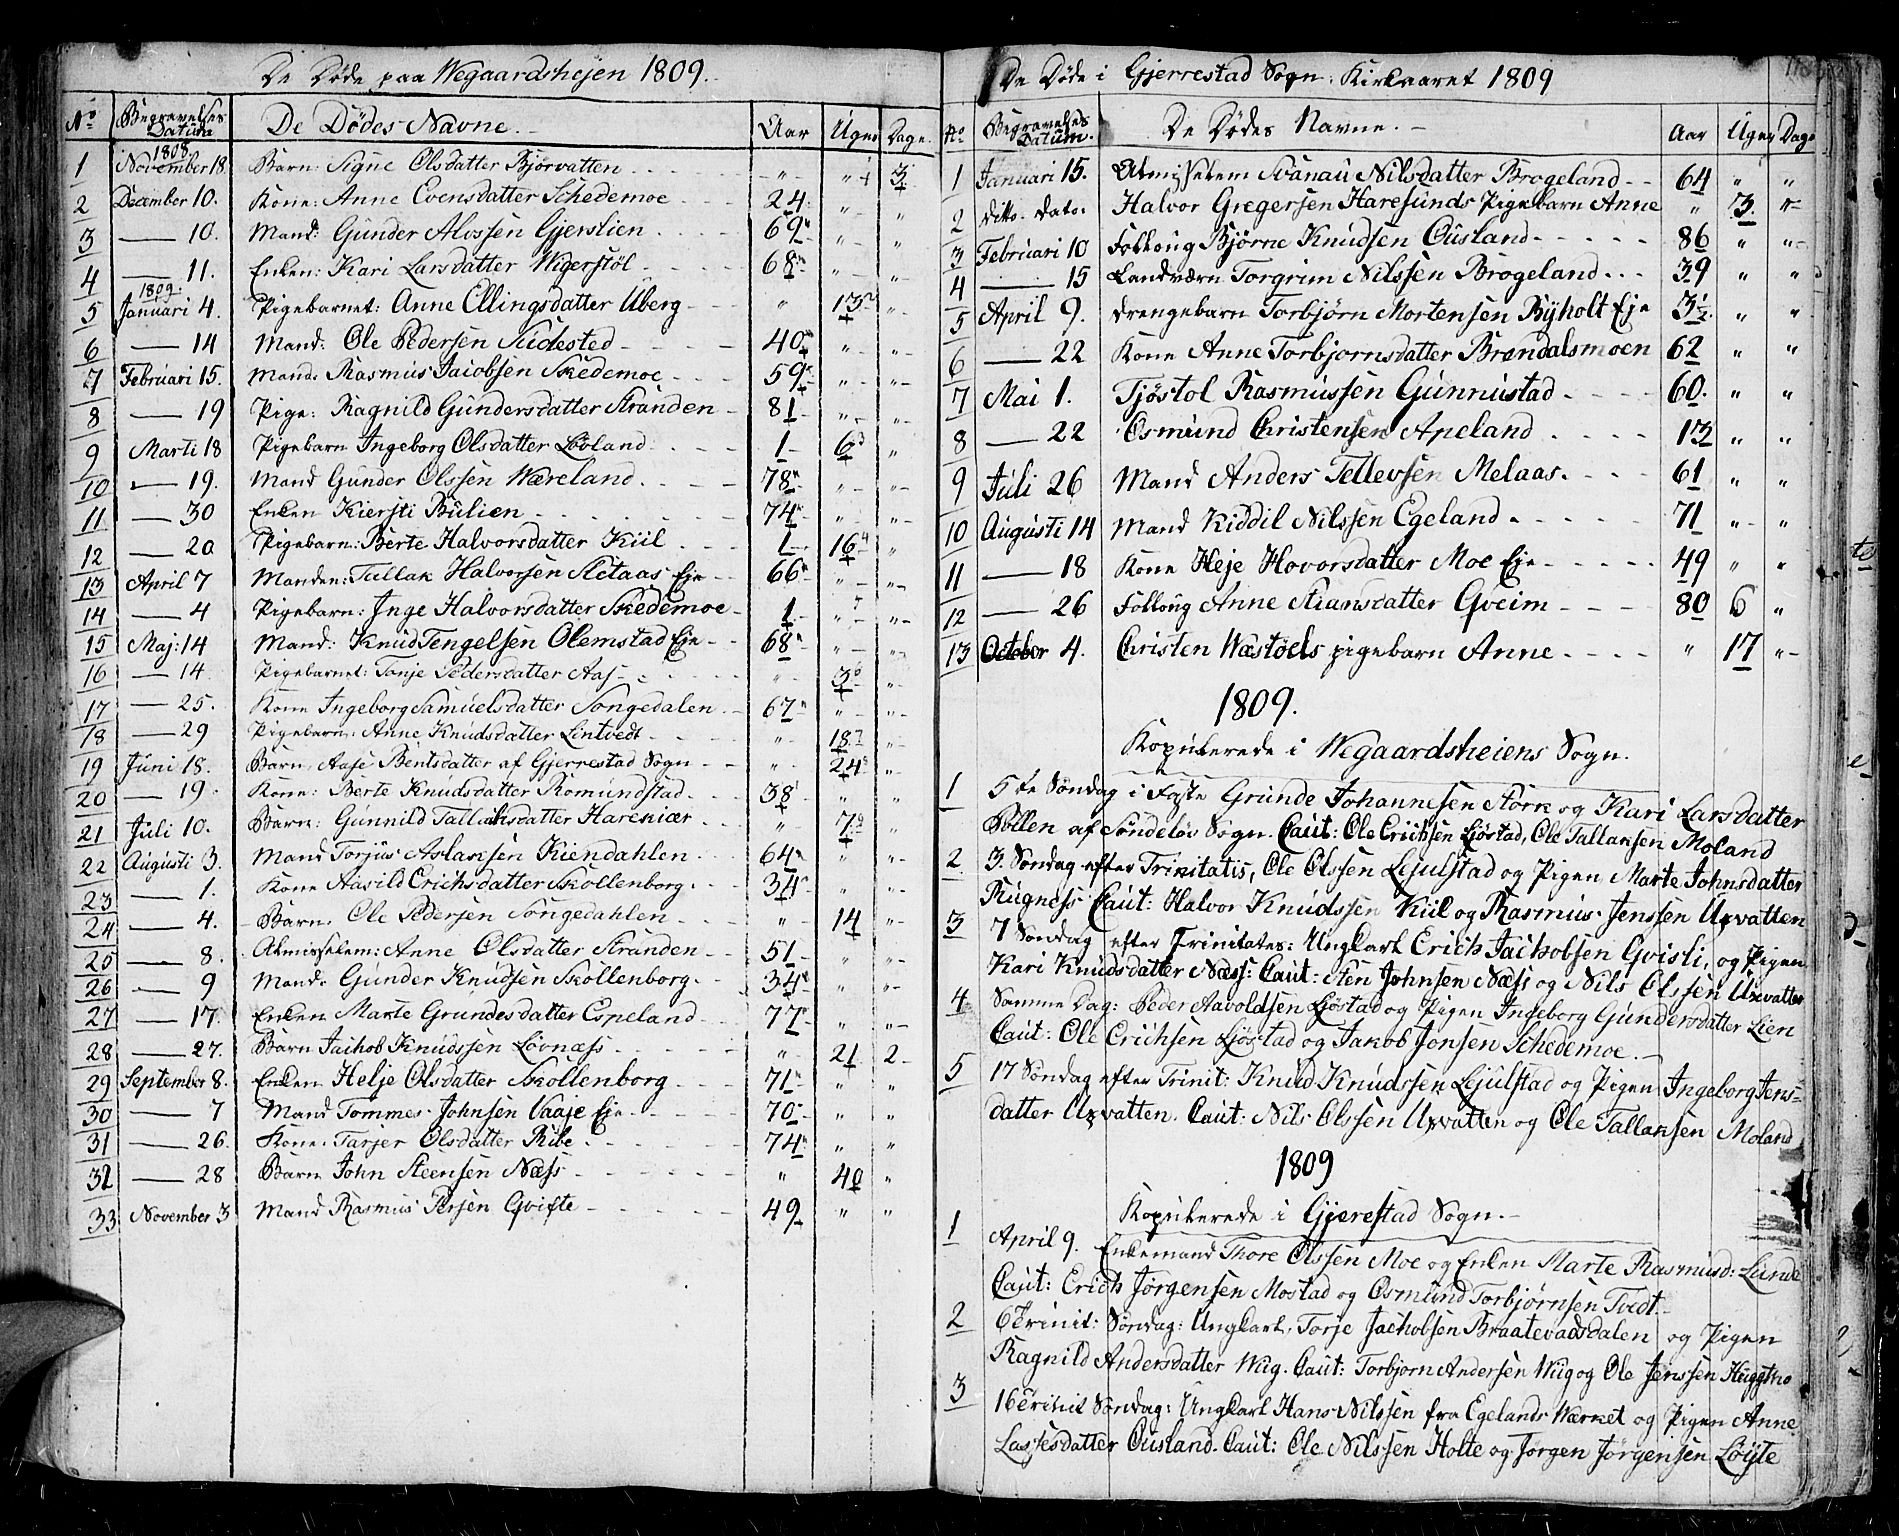 De Døde paa Wegaardshejen 1809.
No Begravelses Datum De Dødes Navne. Aar Uger Dage
1 1808 November 18. Barn: Signe Olsdatter Bjørvatten " " 3
2 December 10. Kone: Anne Evensdatter Schedemoe 24 " "
3 — 10. Mand: Gunder Alvssen Gjerslien 69 " "
4 — 11. Enken: Kari Larsdatter Wigerstøl 68 " "
5 1809. Januari 4. Pigebarnet: Anne Ellingsdatter Uberg " 13 "
6 — 14 Mand: Ole Pedersen Sudested 40 " "
7 Februari 15. Mand: Rasmus Jacobsen Skedemoe 59 " "
8 — 19 Pige: Ragnild Gundersdatter Stranden 81 " "
9 Marti 18 Pigebarn Ingeborg Olsdatter Løvland 1 6 "
10 — 19. Mand Gunder Olssen Wæreland 78 " "
11 — 30 Enken Kiersti Bulien 74 " "
12 — 20 Pigebarn: Berte Halvorsdatter Kiil 1 16 "
13 April 7 Manden: Tallak Halvorsen Sletaas Eje 66 " "
14 — 4 Pigebarn: Inge Halvorsdatter Skedemoe 1 " "
15 Maj: 14 Mand: Knud Tengelsen Olemstad Eje 68 " "
16 — 14 Pigebarnet: Tanje Pedersdatter Aas " 3 "
17 — 25. Kone Ingeborg Samuelsdatter Songedalen 67 " "
18 — 29 Pigebarn: Anne Knudsdatter Lintvedt " 18 "
19 Juni 18. Barn, Aase Bentsdatter af Gjerrestad Sogn " 24 "
20 — 19. Kone: Berte Knudsdatter Romundstad 38 " "
21 Juli 10. Barn: Gunnild Tallaksdatter Harekiær " 7 "
22 Augusti 3. Mand Torjus Aslaksen Kiendahlen 64 " "
23 — 1. Kone Aasild Erichsdatter Skollenborg 34 " "
24 — 4. Barn. Ole Pedersen Songedahlen " 14 "
25 — 8. Almisselem: Anne Olsdatter Stranden 51 " "
26 — 9 Mand. Gunder Knudsen Skollenborg 34 " "
27 — 17. Enken Marte Grundesdatter Espeland 77 " "
28 — 27. Barn Jachob Knudssen Løvnæss " 21 2
29 September 8. Enken Helje Olsdatter Skollenborg 71 " "
30 — 7 Mand Tommes Johnsen Vaaje Eje 70 " "
31 — 26. Kone: Tarjer Olsdatter Ribe 74 " "
32 — 28 Barn John Steensen Næss " 40 "
33 November 3 Mand Rasmus Persen Gvifte 49 " "
De Døde i Gjerrestad Sogn: Kirkeaaret 1809
No Begravelses Datum. De Dødes Navne. Aar Uger Dage
1 Januari 15. Almisselem Svanau Nilsdatter Brogeland 64 " "
2 Ditto Dato. Halvor Gregersen Haresunds Pigebarn Anne " 3. "
3 Februari 10 Folloug Bjørne Knudsen Ousland 86 " "
4 — 15 Landværn Torgrim Nilssen Brogeland 39 " "
5 April 9. Drengebarn Torbjørn Mortensen Ryholt Eje 3½ " "
6 — 22 Kone Anne Torbjornsdatter Brændalsmoen 62 " "
7 Mai 1. Tjøstol Rasmussen Gunnustad 60. " "
8 — 22 Osmund Christensen Apeland 13 " "
9 Juli 26 Mand Anders Tellevsen Melaas 61 " "
10 Augusti 14 Mand Kiddil Nilssen Egeland 71 " "
11 — 18 Kone Heje Hovorsdatter Moe Eje 49 " "
12 — 26 Folloug Anne Stiansdatter Gveim 80 6 "
13 October 4. Christen Wæstøels pigebarn Anne " 17 "
1809.
Kopulerede i Wegaardsheiens Sogn.
1 5te Søndag i Faste Grunde Johannesen Størk og Kari Larsdatter
Bollen af Søndeløv Sogn. Caut: Ole Erichsen Ljøstad, Ole Tallaksen Moland
2 3. Søndag efter Trinitatis, Ole Olssen Lejulstad og Pigen Marte Johnsdatter
Rugness Caut: Halvor Knudssen Kiil og Rasmus Jenssen Uxvatten
3 7 Søndag efter Trinitates: Ungkarl Erich Jachobsen Gvisli, og Pigen
Kari Knudsdatter Næss: Caut: Sten Johnsen Næss og Nils Olssen Uxvatten
4 Samme Dag: Peder Aavoldsen Ljøstad og Pigen Ingeborg Gundersdatter Lien
Caut: Ole Erichsen Ljøstad og Jakob Jonsen Schedemoe.
5 17 Søndag efter Trinit: Knud Knudssen Lejulstad og Pigen Ingeborg Jens-
datter Uxvatten. Caut: Nils Olssen Uxvatten og Ole Tallaksen Moland
1809
Kopulerede i Gjerestad Sogn.
1 April 9. Enkemand Thore Olssen Moe og Enken Marte Rasmusd: Lunde
Caut: Erich Jørgensen Mostad og Osmund Torbjørnsen Tvedt.
2 6 Trinit: Søndag: Ungkarl, Torje Jachobsen Braatevadsdalen og Pigen
Ragnild Andersdatter Wiig. Caut: Torbjorn Andersen Wiig og Ole Jenssen
3 16 Trinit Søndag: Ungkarl Hans Nilssen fra Egelands Wærket og Pigen Anne
Lassesdatter Ousland. Caut: Ole Nilssen Holte og Jørgen Jørgensen Løyte